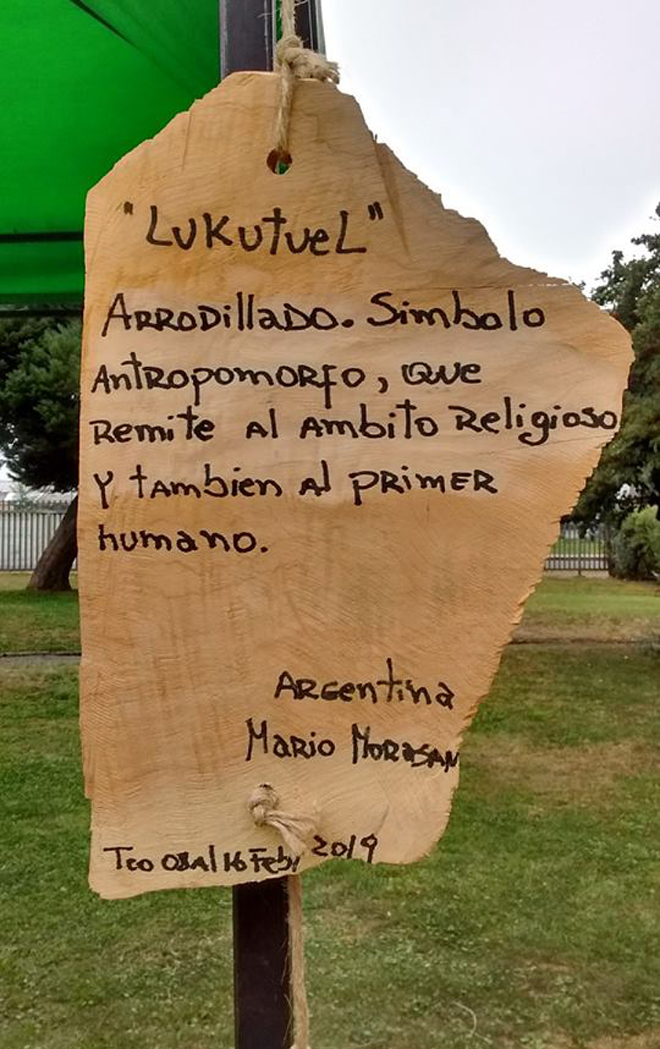 "Lukutuel"
Arrodillado. Simbolo
Antropomorfo, que
Remite al ambito Religioso
Y tambien al primer
humano.
Argentina
Mario Morasan
Tco 08 al 16 Feb, 2019